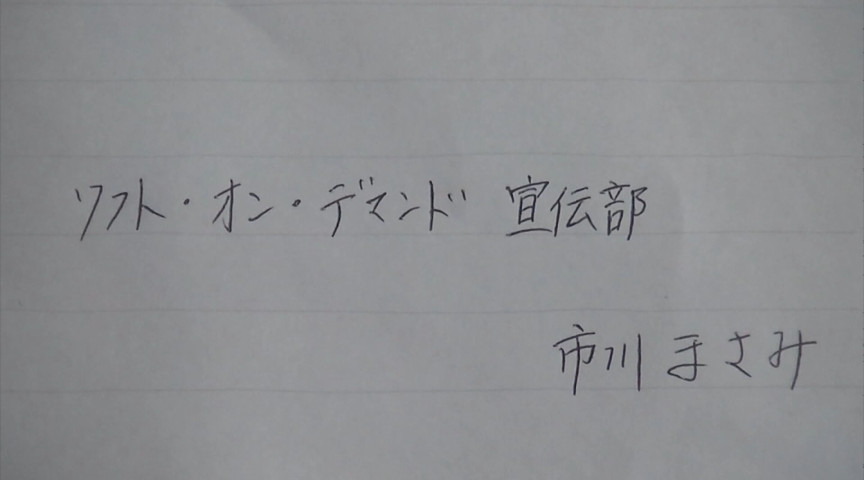 ソフト・オン・デマンド 宣伝部
市川 まさみ